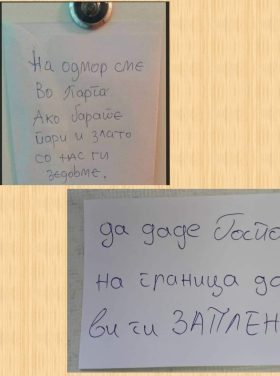 На одмор сме
Во Парга
Ако барате
пари и злато
со нас ги
зедовме.
да даде
на граница да
ви ги ЗАПЛЕН